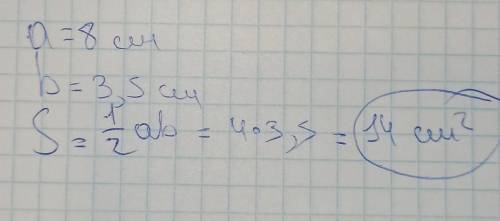 a = 8 см
b = 3,5 см
S = 1/2 ab = 4·3,5 = 14 см²